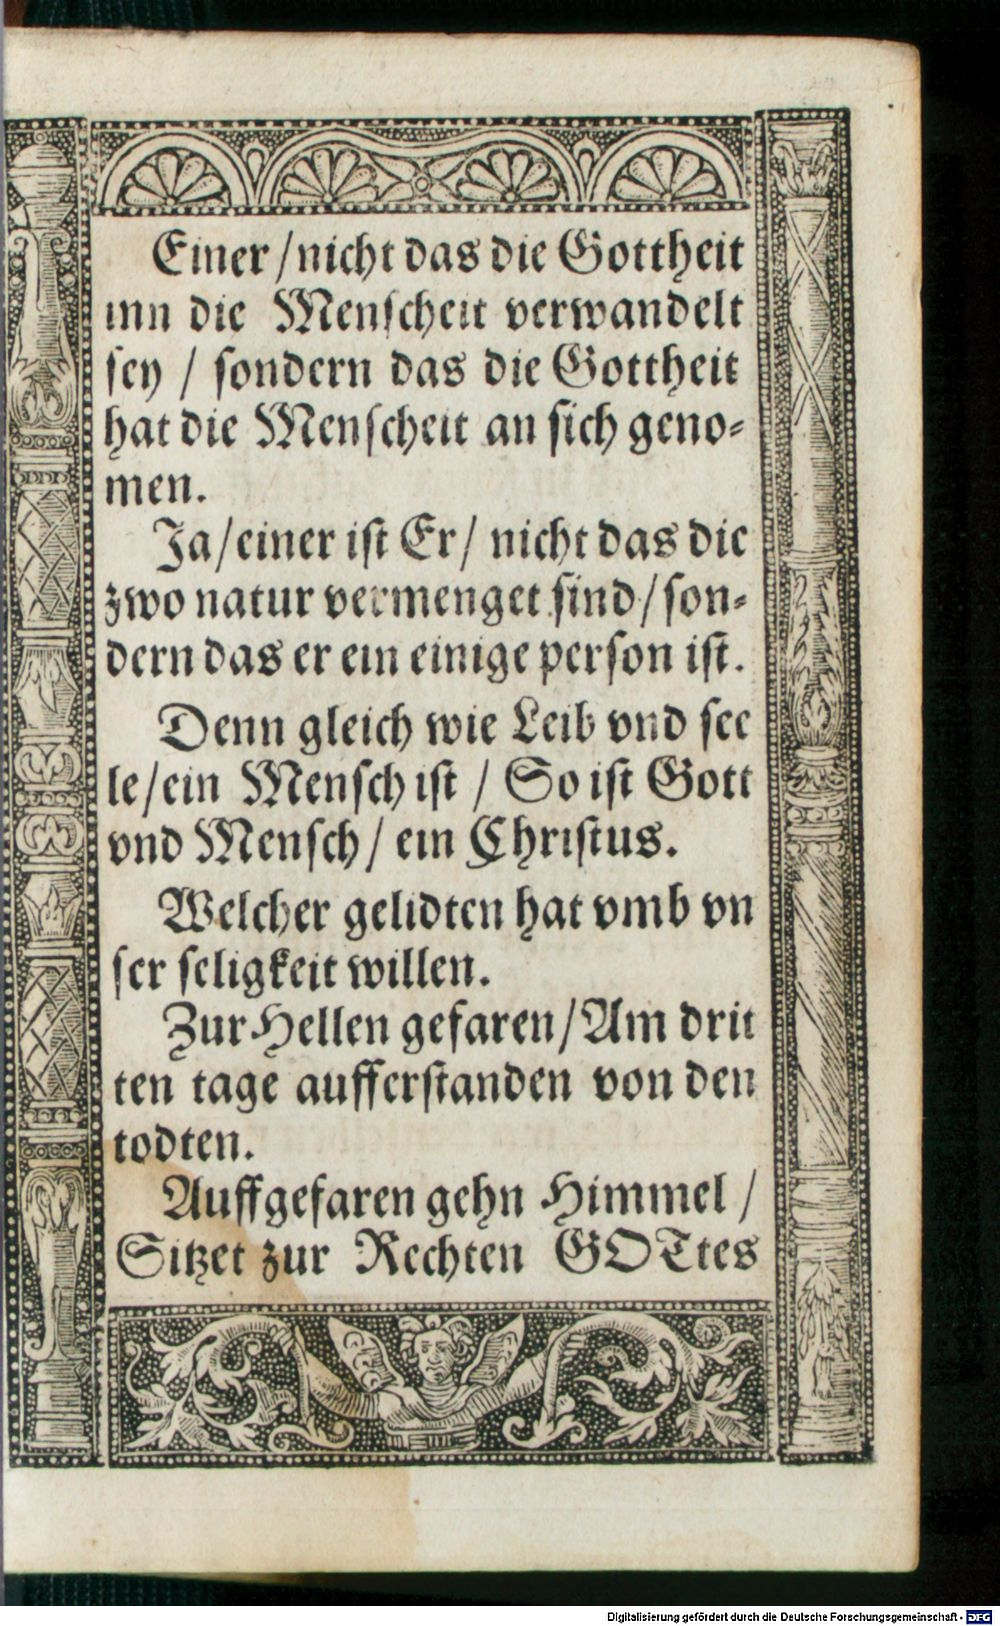 Einer / nicht das die Gottheit
inn die Menscheit verwandelt
sey / sondern das die Gottheit
hat die Menscheit an sich geno-
men.
Ja / einer ist Er / nicht das die
zwo natur vermenget sind / son-
dern das er ein einige person ist.
Denn gleich wie Leib vnd see
le / ein Mensch ist / So ist Gott
vnd Mensch / ein Christus.
Welcher gelidten hat vmb vn
ser seligkeit willen.
Zur Hellen gefaren / Am drit
ten tage aufferstanden von den
todten.
Auffgefaren gehn Himmel /
Sitzet zur Rechten GOTtes
Digitalisierung gefördert durch die Deutsche Forschungsgemeinschaft - DFG